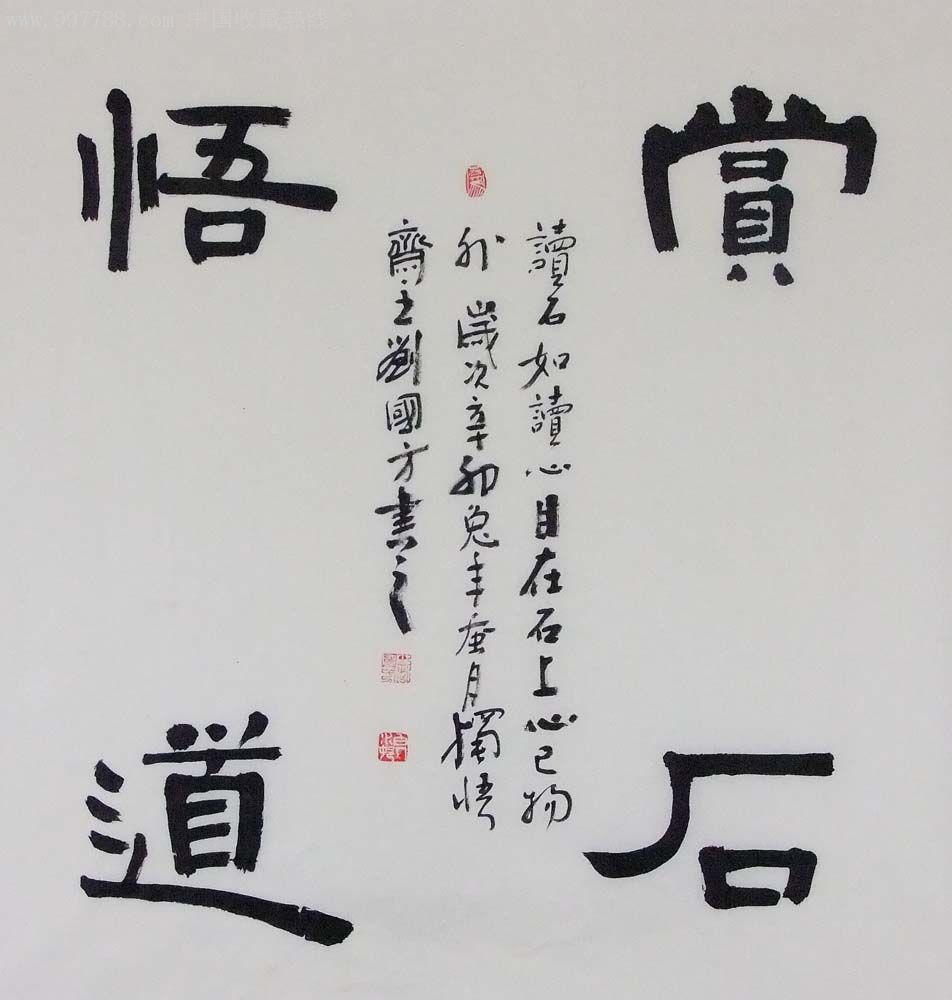 www.997788.com 中国收藏热线
賞石
悟道
讀石如讀心目在石上心已物
外 歲次辛卯兔年蚕月獨悟
齋主劉國方書之